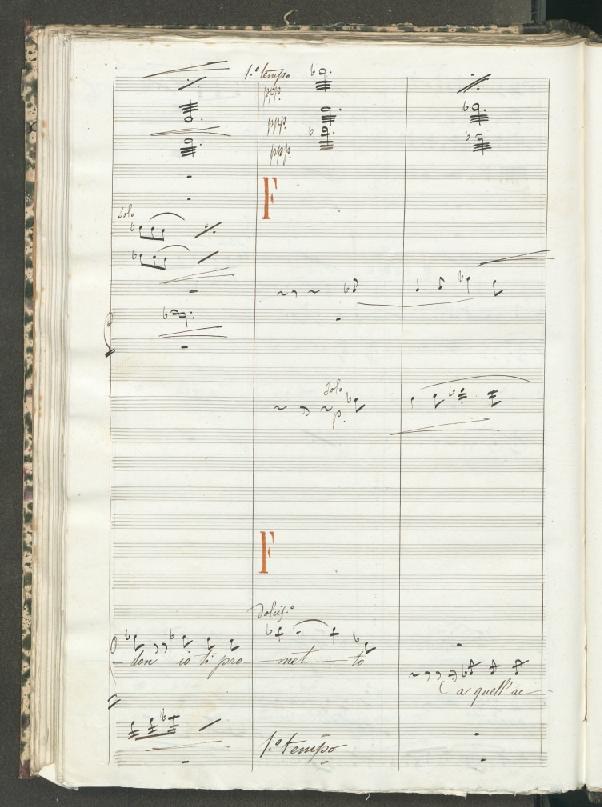 1.o tempo
ppp.
ppp.
ppp
F
Solo
Solo
p.
F
dolciss.o
don io ti pro - met - to
a quell'ac
1.o tempo